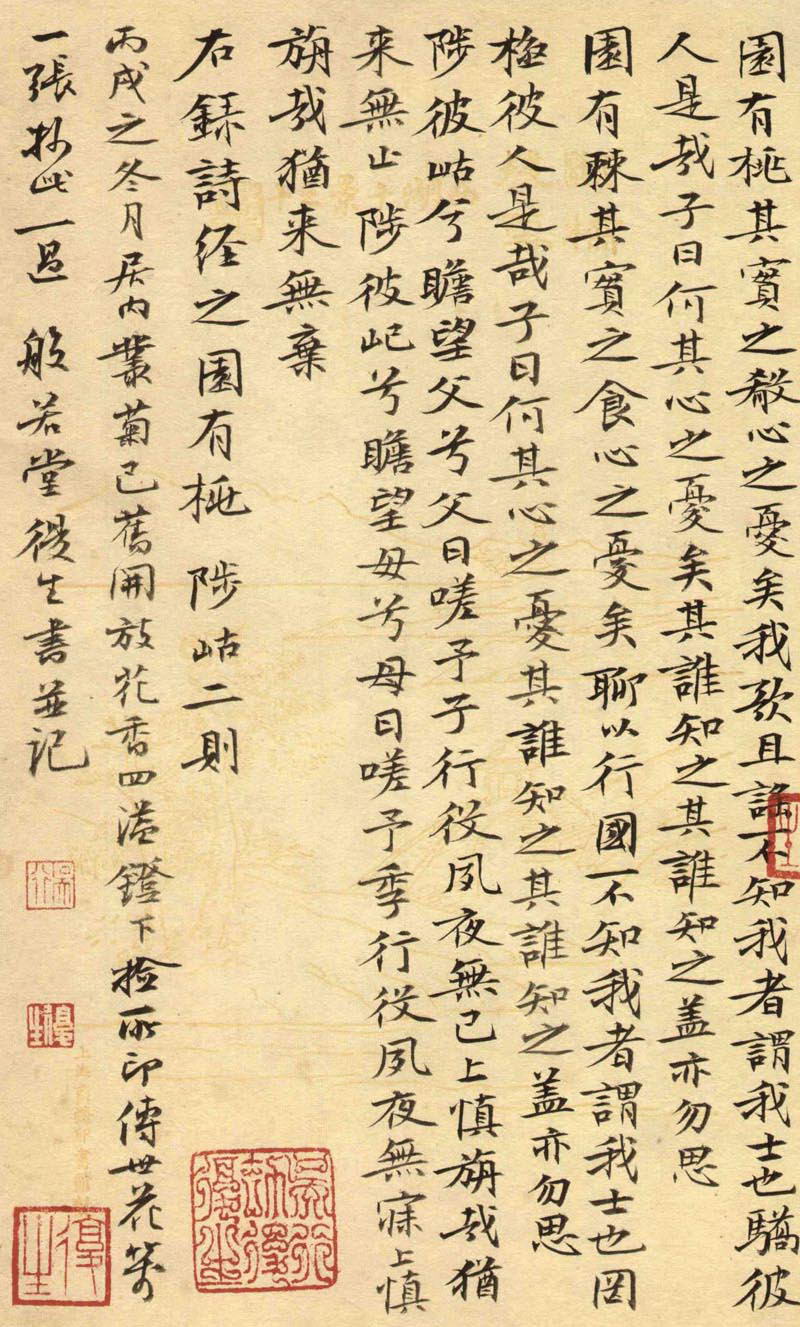 園有桃其實之殽心之憂矣我歌且謠不知我者謂我士也驕彼
人是哉子曰何其心之憂矣其誰知之其誰知之蓋亦勿思
園有棘其實之食心之憂矣聊以行國不知我者謂我士也罔
極彼人是哉子曰何其心之憂其誰知之其誰知之蓋亦勿思
陟彼岵兮瞻望父兮父曰嗟予子行役夙夜無已上慎旃哉猶
来無止陟彼屺兮瞻望母兮母曰嗟予季行役夙夜無寐上慎
旃哉猶来無棄
右録詩经之園有桃 陟岵二則
丙戌之冬月居内叢菊已舊開放花香四溢鐙下撿所印傳世花箋
一張抄此一過 般若堂後生書並記